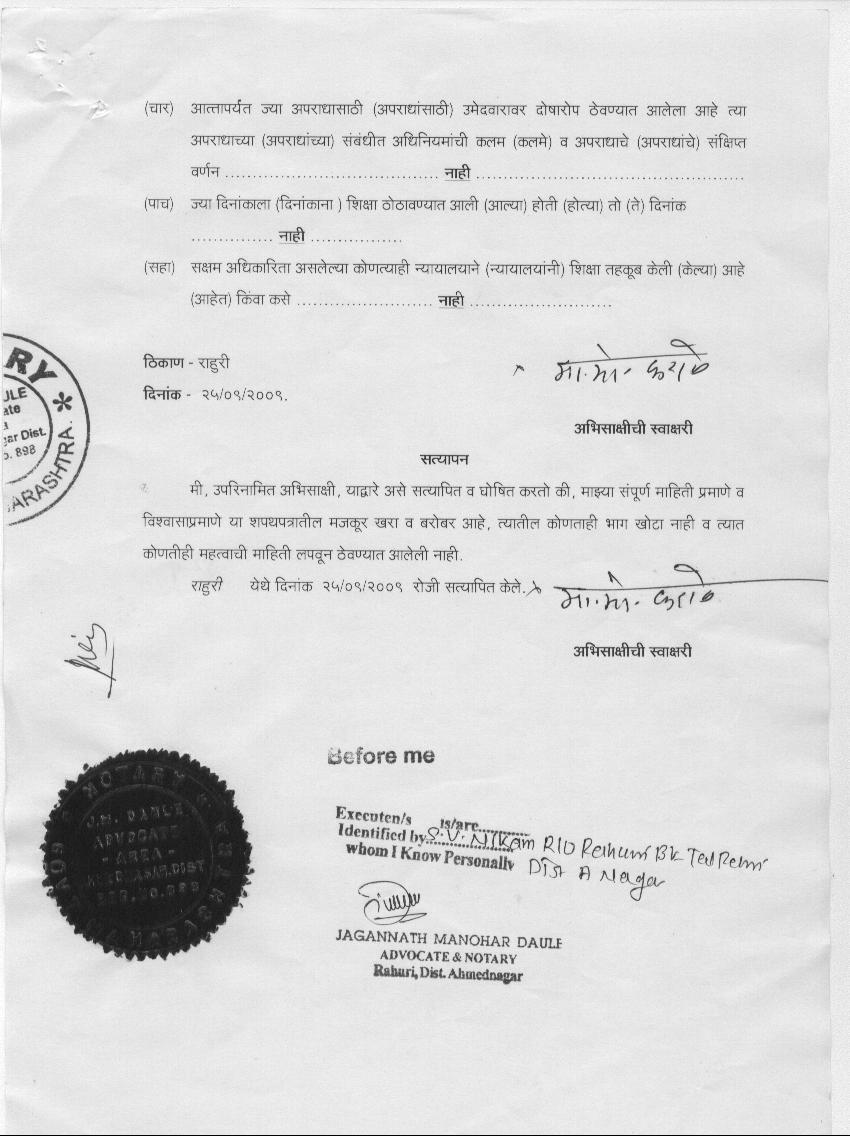 (चार) आत्तापर्यंत ज्या अपराधासाठी (अपराधांसाठी) उमेदवारावर दोषारोप ठेवण्यात आलेला आहे त्या
अपराधाच्या (अपराधांच्या) संबंधीत अधिनियमांची कलम (कलमे) व अपराधाचे (अपराधांचे) संक्षिप्त
वर्णन ...................................... नाही ................................................
(पाच) ज्या दिनांकाला (दिनांकाना ) शिक्षा ठोठावण्यात आली (आल्या) होती (होत्या) तो (ते) दिनांक
............... नाही .................
(सहा) सक्षम अधिकारिता असलेल्या कोणत्याही न्यायालयाने (न्यायालयांनी) शिक्षा तहकूब केली (केल्या) आहे
(आहेत) किंवा कसे ........................ नाही .........................
ठिकाण - राहुरी
दिनांक - २५/०९/२००९.
अभिसाक्षीची स्वाक्षरी
सत्यापन
मी, उपरिनामित अभिसाक्षी, याद्वारे असे सत्यापित व घोषित करतो की, माझ्या संपूर्ण माहिती प्रमाणे व
विश्वासाप्रमाणे या शपथपत्रातील मजकूर खरा व बरोबर आहे, त्यातील कोणताही भाग खोटा नाही व त्यात
कोणतीही महत्वाची माहिती लपवून ठेवण्यात आलेली नाही.
राहुरी येथे दिनांक २५/०९/२००९ रोजी सत्यापित केले.
अभिसाक्षीची स्वाक्षरी
Before me
Executen/s is/are.........
Identified by S.V. Nikam R/O Rahuri Bk Tal Rahuri
whom I Know Personally Dist A Nagar
JAGANNATH MANOHAR DAULE
ADVOCATE & NOTARY
Rahuri, Dist. Ahmednagar
J.M. DAULE
ADVOCATE
- AREA -
NOTARY